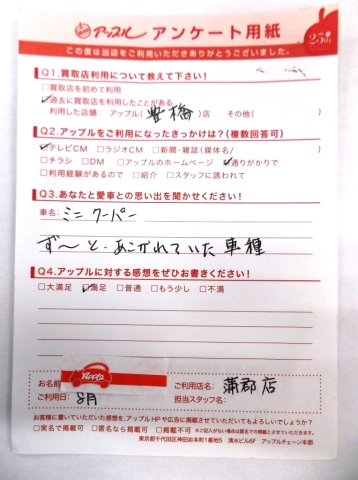 アップル アンケート用紙
25th
この度は当店をご利用いただきありがとうございました。
Q1.買取店利用について教えて下さい!
□買取店を初めて利用
☑過去に買取店を利用したことがある
利用した店舗: アップル( 豊橋 )店 その他( )
Q2.アップルをご利用になったきっかけは?(複数回答可)
☑テレビCM □ラジオCM □新聞・雑誌(媒体名/ )
□チラシ □DM □アップルのホームページ ☑通りがかりで
□利用経験があるので □紹介 □スタッフに誘われて
Q3.あなたと愛車との思い出を聞かせください!
車名: ミニ クーパー
ず〜と、あこがれていた車種
Q4.アップルに対する感想をぜひお書きください!
□大満足 ☑満足 □普通 □もう少し □不満
お名前
Apple
ご利用店名: 蒲郡店
ご利用日: 8月
担当スタッフ名:
お客様に書いていただいた感想を、アップルHPや広告に掲載させていただいてもよろしいでしょうか?
□実名で掲載可 □匿名なら掲載可 □掲載不可 ※ご記入がない場合は匿名での掲載とさせていただきます。
東京都千代田区神田岩本町1番地5 清水ビル6F アップルチェーン本部